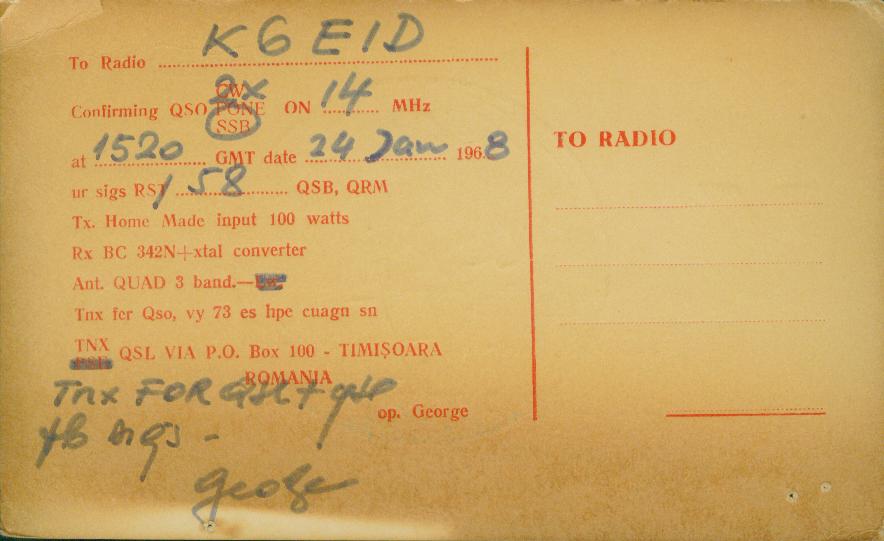 To Radio K6EID
CW 2x
Confirming QSO FONE ON 14 MHz
SSB
at 1520 GMT date 24 Jan 1968
ur sigs RST 58 QSB, QRM
Tx. Home Made input 100 watts
Rx BC 342N+xtal converter
Ant. QUAD 3 band.—
Tnx fer Qso, vy 73 es hpe cuagn sn
TNX
PSE QSL VIA P.O. Box 100 - TIMIȘOARA
ROMANIA
Tnx FOR QSL + QSO
op. George
fb sigs -
George
TO RADIO